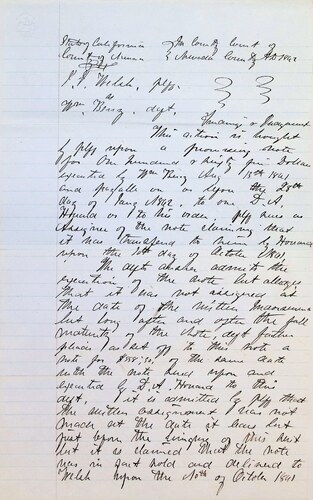 State of California } In County Court of
County of Nevada } Nevada County AD 1892
J. J. Welch, plff.
vs
Wm. Berg, deft.
Findings & Judgment
This action is brought
by plff upon a promissory note
for One hundred & thirty five Dollars
executed by Wm Berg Aug 15th 1891
and payable on or before the 25th
day of Jany 1892, to one D. A.
Howard or to his order. plff sues as
Assignee of the note claiming that
it was transferred to him by Howard
upon the day of October 1891.
The deft answer admits the
execution of the note but alleges
that it was not assigned at
the date of the written Indorsement
but long after and after the full
maturity of the note, deft further
pleads as set off to this note a
note for $ of the same date
with the note sued upon and
executed by D. A. Howard to this
deft, it is admitted by plff that
the written assignment was not
made at the date it bears but
just before the bringing of this suit
but it is claimed that the note
was in fact sold and delivered to
Welch upon the 10th of October 1891